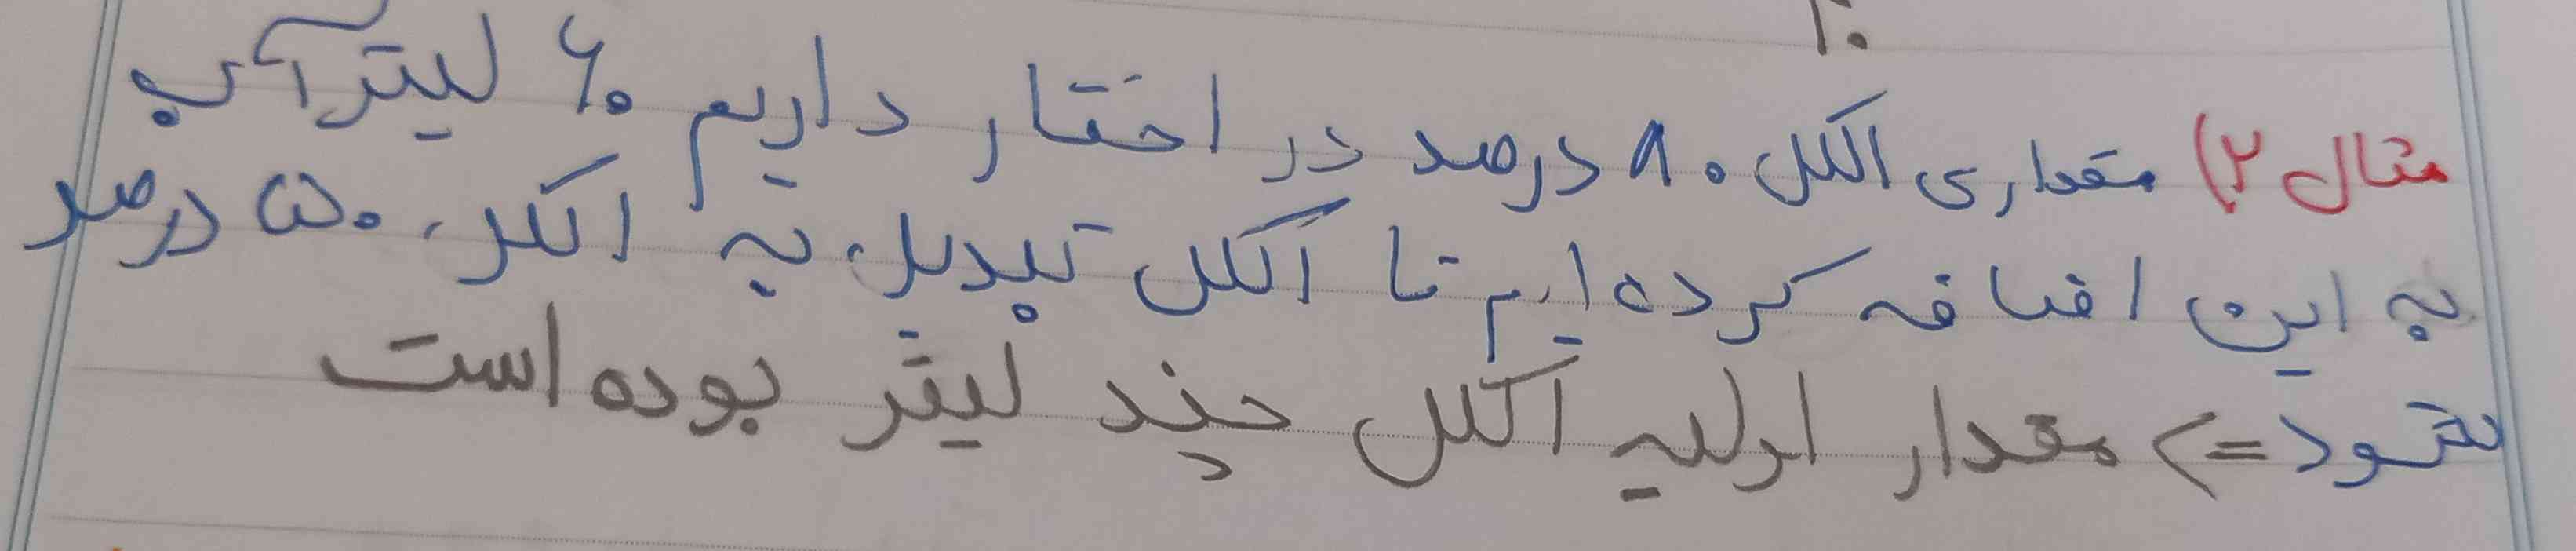 ۲۰
مثال ۲) مقداری الکل ۸۰ درصد در اختیار داریم ۶۰ لیتر آب
به این اضافه کرده ایم تا الکل تبدیل به الکل ۵۰ درصد
بشود => مقدار اولیه الکل چند لیتر بوده است